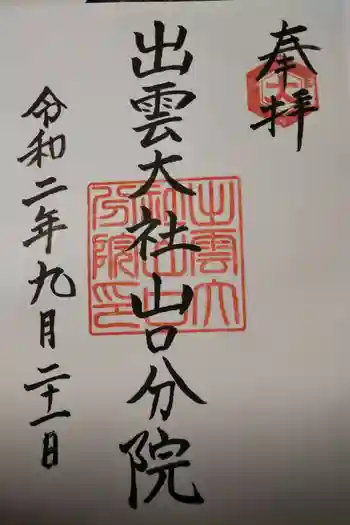 奉拝
出雲大社山口分院
出雲大
社山口
分院印
令和二年九月二十一日